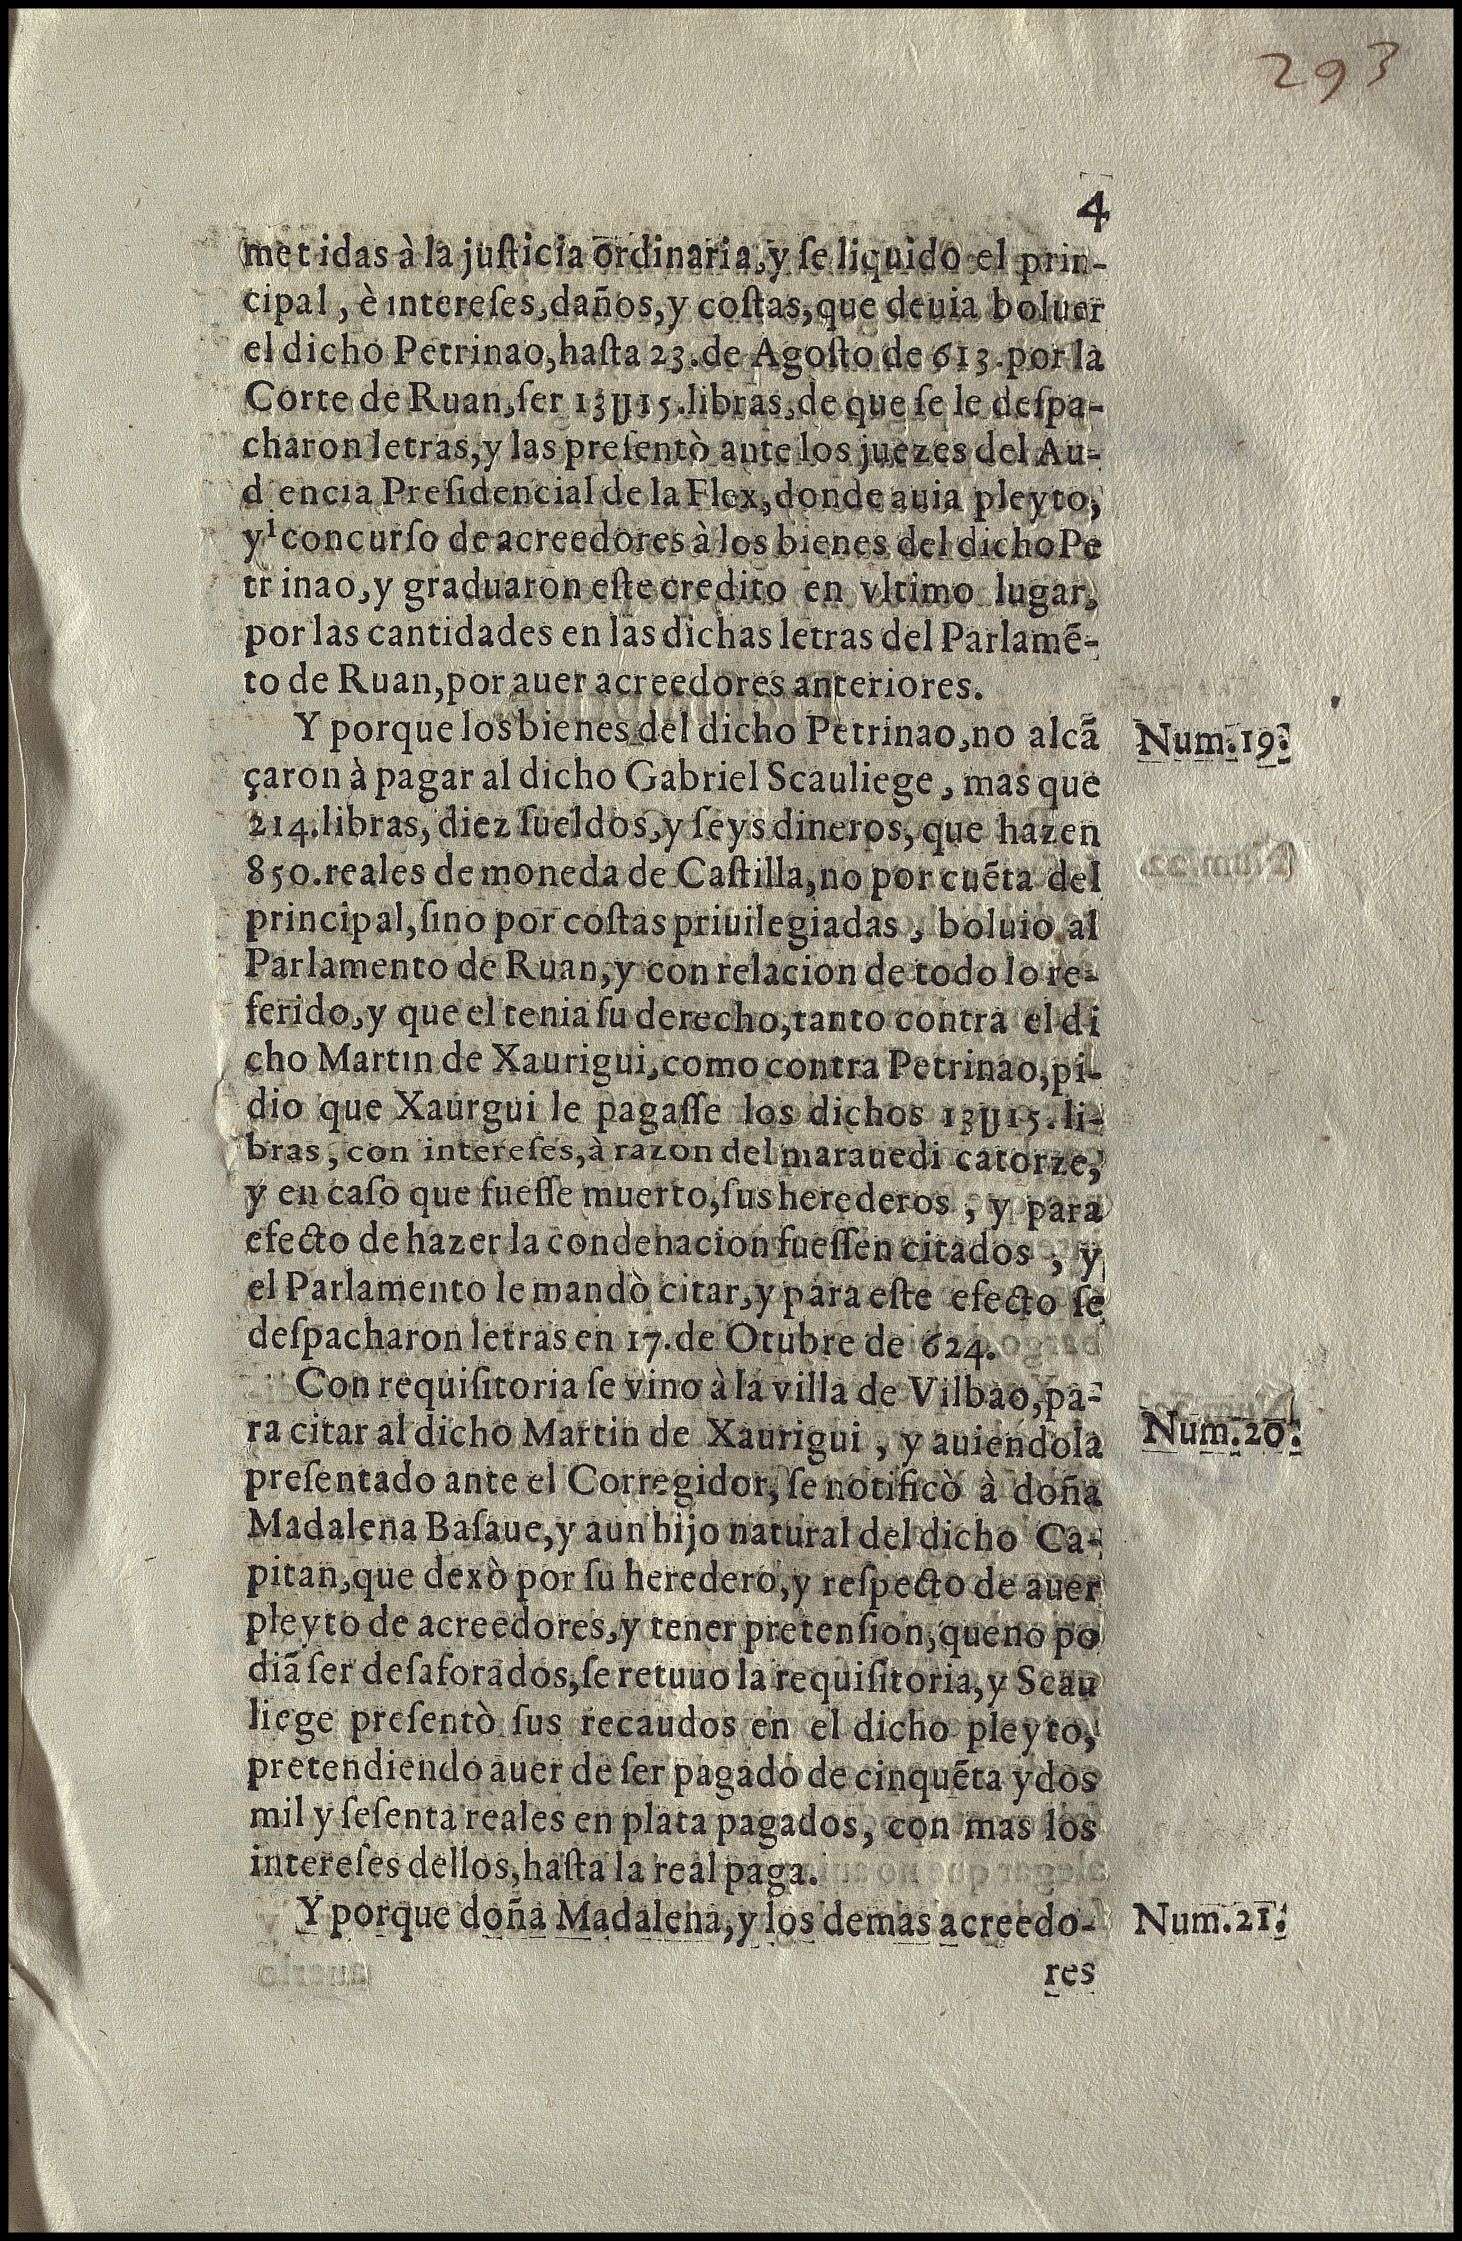 293
4
met idas à la juſticia ordinaria, y ſe liquido el prin-
cipal, è intereſes, daños, y coſtas, que deuia boluer
el dicho Petrinao, haſta 23. de Agoſto de 613. por la
Corte de Ruan, ſer 13U15. libras, de que ſe le deſpa-
charon letras, y las preſentò ante los juezes del Au-
d encia Preſidencial de la Flex, donde auia pleyto,
yi concurſo de acreedores à los bienes del dicho Pe
tr inao, y graduaron eſte credito en vltimo lugar,
por las cantidades en las dichas letras del Parlamẽ-
to de Ruan, por auer acreedores anteriores.
Y porque los bienes del dicho Petrinao, no alcã
çaron à pagar al dicho Gabriel Scauliege, mas que
214. libras, diez ſueldos, y ſeys dineros, que hazen
850. reales de moneda de Caſtilla, no por cuẽta del
principal, ſino por coſtas priuilegiadas, boluio al
Parlamento de Ruan, y con relacion de todo lo re-
ferido, y que el tenia ſu derecho, tanto contra el di
cho Martin de Xaurigui, como contra Petrinao, pi-
dio que Xaurgui le pagaſſe los dichos 13U15. li-
bras, con intereſes, à razon del marauedi catorze,
y en caſo que fueſſe muerto, ſus herederos, y para
efecto de hazer la condenacion fueſſen citados, y
el Parlamento le mandò citar, y para eſte efecto ſe
deſpacharon letras en 17. de Otubre de 624.
Con requiſitoria ſe vino à la villa de Vilbao, pa-
ra citar al dicho Martin de Xaurigui, y auiendola
preſentado ante el Corregidor, ſe notificò à doña
Madalena Baſaue, y aun hijo natural del dicho Ca-
pitan, que dexò por ſu heredero, y reſpecto de auer
pleyto de acreedores, y tener pretenſion, que no po
diã ſer deſaforados, ſe retuuo la requiſitoria, y Scau
liege preſentò ſus recaudos en el dicho pleyto,
pretendiendo auer de ſer pagado de cinquẽta y dos
mil y ſeſenta reales en plata pagados, con mas los
intereſes dellos, haſta la real paga.
Y porque doña Madalena, y los demas acreedo-
res
Num. 19.
Num. 20.
Num. 21.